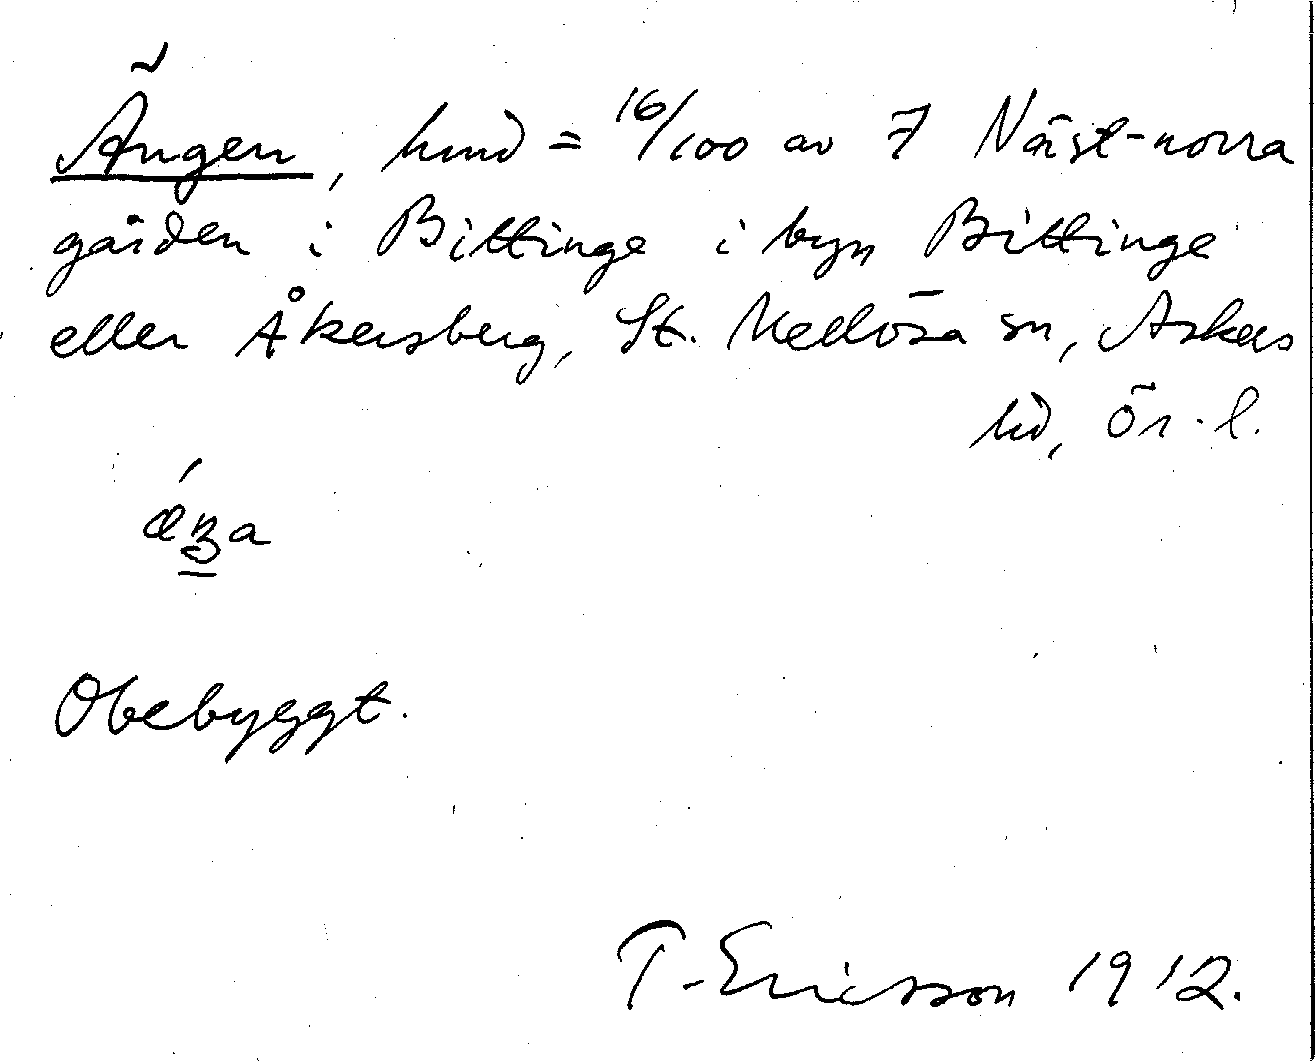 Ängen, hmd = 16/100 av 7 Näst-norra
gården i Bittinge i byn Bittinge
eller Åkersberg, St. Mellösa sn, Askers
hd, Ör. l.
Obebyggt.
T. Ericsson 1912.